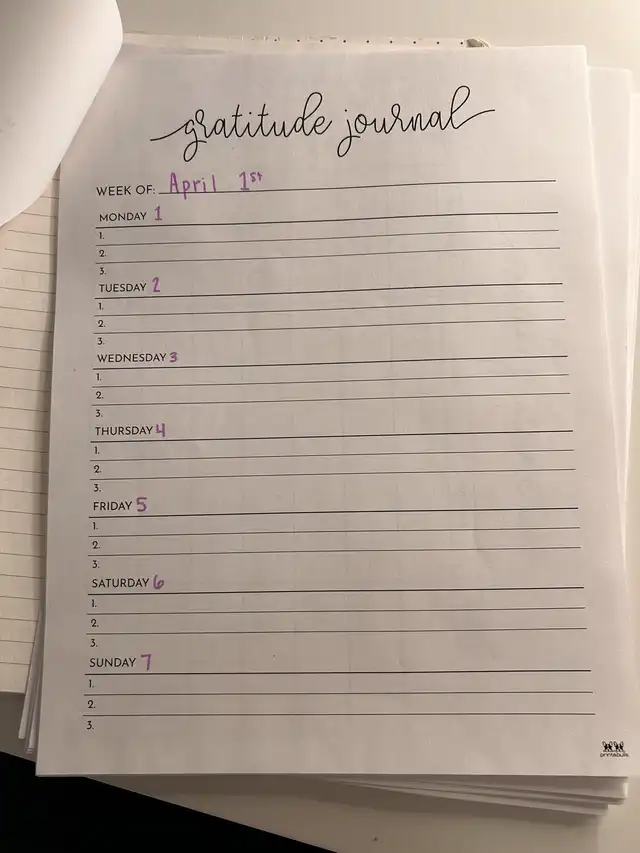 gratitude journal
WEEK OF: April 1st
MONDAY 1
1.
2.
3.
TUESDAY 2
1.
2.
3.
WEDNESDAY 3
1.
2.
3.
THURSDAY 4
1.
2.
3.
FRIDAY 5
1.
2.
3.
SATURDAY 6
1.
2.
3.
SUNDAY 7
1.
2.
3.
printabulls